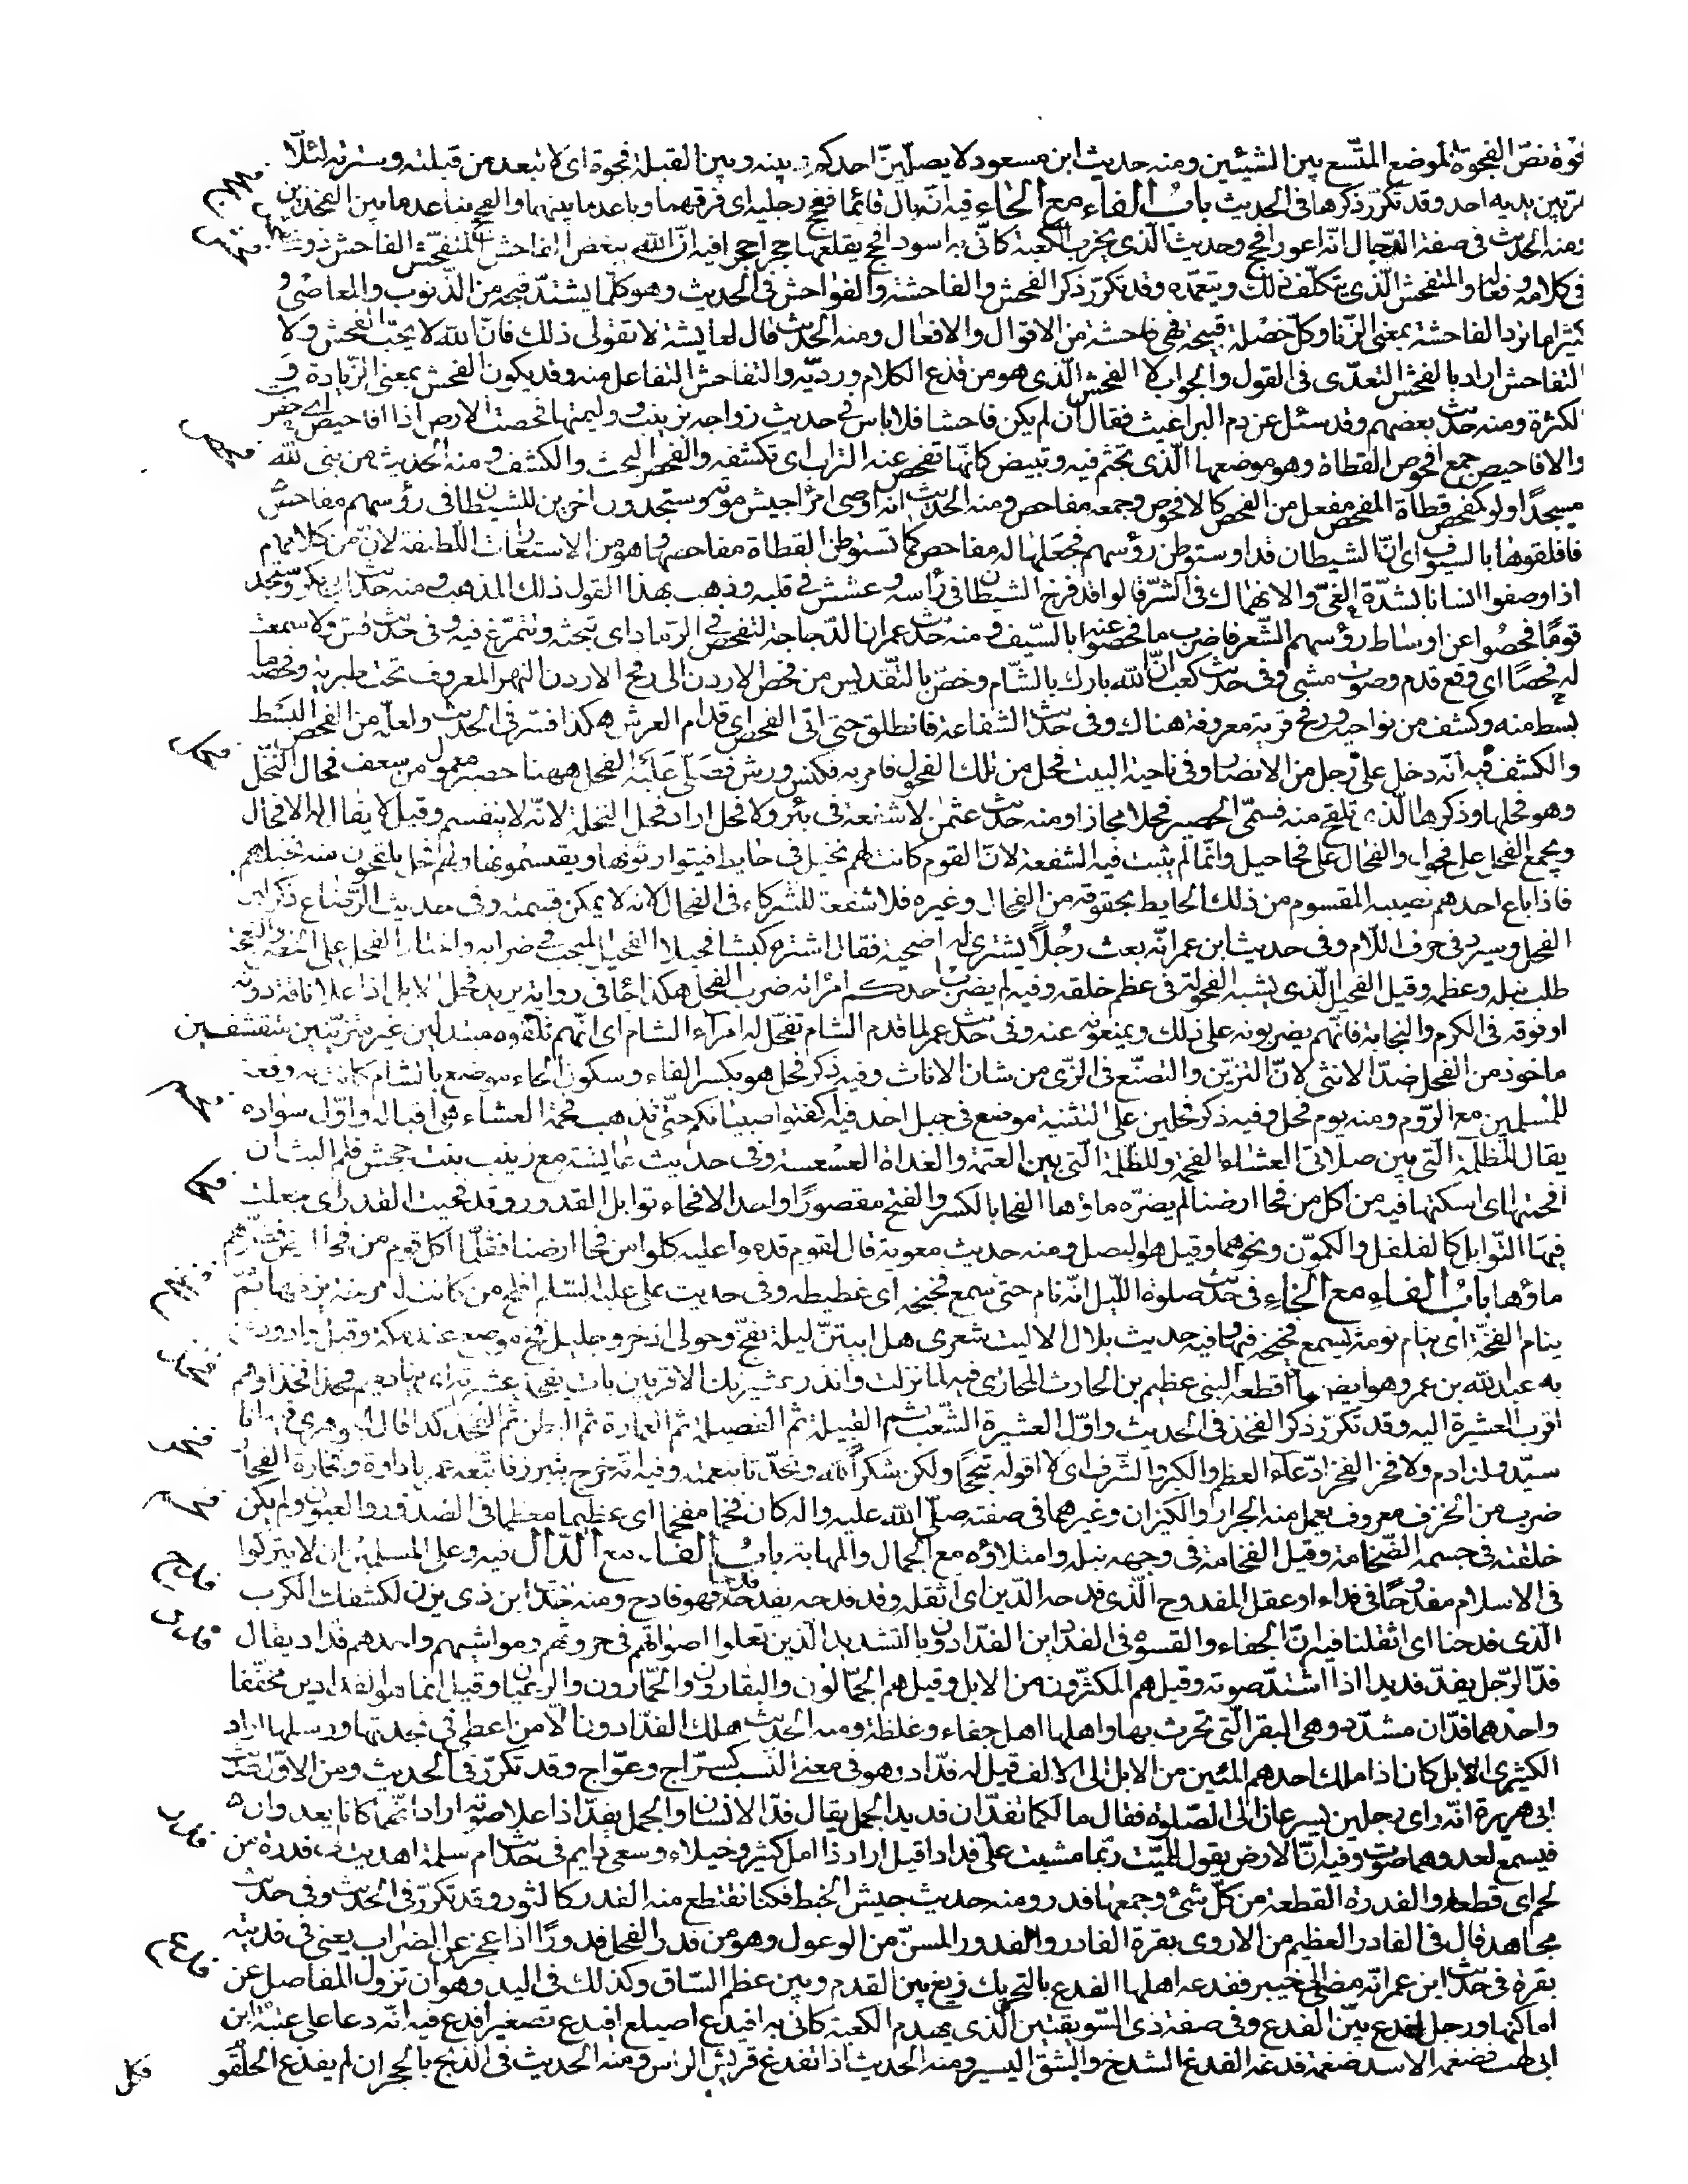 فجوة نصّ الفجوة الموضع المتّسع بين الشيئين ومنه حديث ابن مسعود لا يصلينّ احدكم وبينه وبين القبلة فجوة اى لا تبعد من قبلته وسترته لئلّا
يمرّ بين يديه احد وقد تكرّر ذكرها فى الحديث بابُ الفاء مع الحاء فيه انّه بال قائما ففحج رجليه اى فرقهما وباعد ما بينهما والفحج تباعد ما بين الفخذين
ومنه الحديث فى صفة الدجال انّه اعور افحج وحديث الّذى يخرب الكعبة كانّى به اسود افحج يقلعها حجرا حجرا فيه انّ الله يبغض الفاحش المتفحّش الفاحش ذو
فى كلامه وفعاله والمتفحش الّذى يتكلّف ذلك ويتعمّده وقد تكرّر ذكر الفحش والفاحشة والفواحش فى الحديث وهو كلّما يشتدّ قبحه من الذّنوب والمعاصى و
كثيرا ما ترد الفاحشة بمعنى الزّنا وكلّ خصلة قبيحة فهى فاحشة من الاقوال والافعال ومنه الحديث قال لعايشة لا تقولى ذلك فانّ الله لا يحبّ الفحش ولا
التفاحش اراد بالفحش التعدّى فى القول والجواب لا الفحش الّذى هو من قذع الكلام وردّيه والتفاحش التفاعل منه وقد يكون الفحش بمعنى الزّيادة و
الكثرة ومنه حديث بعضهم وقد سئل عن دم البراغيث فقال ان لم يكن فاحشا فلا باس فى حديث زواجه بزينب ووليمتها فحصت الارض افاحيص اى حفر
والافاحيص جمع افحوص القطاة وهو موضعها الّذى تجثم فيه وتبيض كانّها تفحص عنه التراب اى تكشفه والفحص البحث والكشف ومنه الحديث من بنى لله
مسجدًا ولو كمفحص قطاة المفحص مفعل من الفحص كالافحوص وجمعه مفاحص ومنه الحديث انّه اوصى امراء جيش موتة وستجدون اخرين للشيطان فى رؤسهم مفاحص
فافلقوها بالسيوف اى انّ الشيطان قد استوطن رؤسهم فجعلها له مفاحص كما تستوطن القطاة مفاحصها وهو من الاستعارات اللّطيفة لانّ من كلامهم
اذا وصفوا انسانا بشدّة الغىّ والانهماك فى الشرّ قالوا قد فرخ الشيطان فى راسه وعشش فى قلبه فذهب بهذا القول ذلك المذهب ومنه حديث ابى بكر وستجد
قومًا فحصُوا عن اوساط رؤسهم الشّعر فاضرب ما فحصوا عنه بالسّيف ومنه حديث عمر انّ الدّجاجة لتفحص فى الرّماد اى تبحثه وتتمرّغ فيه وفى حديث قس ولا سمعت
له فحصًا اى وقع قدم وصوت مشى وفى حديث كعب انّ الله بارك بالشّام وخصّ بالتّقديس من فحص الاردن الى رفح الاردن النهر المعروف تحت طبرية وفحصه ما
بسط منه وكشف من نواحيه ورفح قرية معروفة هناك وفى حديث الشفاعة فانطلق حتى اتى الفحص اى قدام العرش هكذا فسّر فى الحديث ولعلّه من الفحص البسط
والكشف فيه انّه دخل على رجل من الانصار وفى ناحية البيت فحل من تلك الفحول فامر به فكنس ورش فصلّى عليه الفحل ههنا حصير معمول من سعف فحال النخل
وهو فحلها وذكرها الّذى تلقح منه فسمّى الحصير فحلا مجازا ومنه حديث عثمن لا شفعة فى بئر ولا فحل اراد فحل النخلة لانّه لا ينقسم وقيل لا يقال له الا فحال
ويجمع الفحل على فحول والفحال على فحاحيل وانّما لم يثبت فيه الشفعة لانّ القوم كانت لهم نخيل فى حايط فيتوارثونها ويقتسمونها ولهم فحل يلقحون منه نخيلهم
فاذا باع احدهم نصيبه المقسوم من ذلك الحايط بحقوقه من الفحال وغيره فلا شفعة للشركاء فى الفحال لانه لا يمكن قسمته وفى حديث الرّضاع ذكر لبن
الفحل وسيرد فى حرف اللّام وفى حديث ابن عمر انّه بعث رجُلًا يشترى له اضحية فقال اشتره كبشا فحيلا الفحيل المنجب فى ضرابه واختار الفحل على
طلب نبله وعظمه وقيل الفحيل الّذى يشبه الفحولة فى عظم خلقه وفيه لم يضرب احدكم امراته ضرب الفحل هكذا جاء فى رواية يريد فحل الابل اذا علا ناقة دونه
او فوقه فى الكرم والنجابة فانّهم يضربونه على ذلك ويمنعونه عنه وفى حديث عمر لما قدم الشام تفحّل له امراء الشام اى انّهم تلقوه متبذّلين غير متزيّنين متقشّفين
ماخوذ من الفحل ضدّ الانثى لانّ التزيّن والتصنّع فى الزّى من شان الاناث وفيه ذكر فحل هو بكسر الفاء وسكون الحاء موضع بالشام كانت به وقعة
للمسلمين مع الرّوم ومنه يوم فحل وفيه ذكر فحلين على التثنية موضع فى جبل احد فيه اكفتوا صبيانكم حتّى تذهب فحمة العشاء هى اقباله واوّل سواده
يقال للظلمة التى بين صلاتى العشاء الفحمة وللظّلمة الّتى بين العتمة والغداة العسعسة وفى حديث عايشة مع زينب بنت جحش فلم البث ان
افحمتها اى اسكتها فيه من اكل من فحا ارضنا لم يضرّه ماؤها الفحا بالكسر والفتح مقصورًا واحد الافحاء توابل القدور وقد فحيت القدر اى جعلت
فيها التّوابل كالفلفل والكمّون ونحوهما وقيل هو البصل ومنه حديث معوية قال لقوم قدموا عليه كلوا من فحا ارضنا فقلّما اكل قوم من فحا ارض فضرّهم
ماؤها بابُ الفاء مع الخاء فى حديث صلوة اللّيل انّه نام حتى سمع فخيخه اى غطيطه وفى حديث على عليه السّلم افلح من كانت له مزخة يزخها ثمّ
ينام الفخّة اى ينام نومة يسمع فخيخه فيها وفيه حديث بلال الا ليت شعرى هل ابيتنّ ليلة بفخّ وحولى اذخر وجليل فخ موضع عند مكة وقيل واد دفن
به عبد الله بن عمر وهو ايضا ما اقطعه النبى عظيم بن الحارث المحاربى فيه لما نزلت وانذر عشيرتك الاقربين بات يفخذ عشيرته اى يناديهم فخذا فخذا وهم
اقرب العشيرة اليه وقد تكرّر ذكر الفخذ فى الحديث واوّل العشيرة الشّعب ثم القبيلة ثم الفصيلة ثم العمارة ثم البطن ثم الفخذ كذا قال الجوهرى فيه انا
سيّد ولد ادم ولا فخر الفخر ادّعاء العظم والكبر والشّرف اى لا اقوله تبجّحا ولكن شكرًا لله وتحدّثا بنعمته وفيه انّه خرج يتبرز فاتّبعه عمر باداوة وفخارة الفخار
ضرب من الخزف معروف يعمل منه الجرار والكيزان وغيرهما فى صفته صلّى الله عليه واله كان فخما مفخما اى عظيما معظّما فى الصدور والعيون ولم يكن
خلقته فى جسمه الضّخامة وقيل الفخامة فى وجهه نبله وامتلاؤه مع الجمال والمهابة بابُ الفاء مع الدّال فيه وعلى المسلمين ان لا يتركوا
فى الاسلام مفدوحًا فى فداء او عقل المفدوح الّذى فدحه الدّين اى اثقله وقد فدحه يفدحه فدحا فهو فادح ومنه حديث ابن ذى يزن لكشفك الكرب
الّذى فدحنا اى اثقلنا فيه انّ الجفاء والقسوة فى الفدّادين الفدّادون بالتشديد الّذين تعلوا اصواتهم فى حروثهم ومواشيهم واحدهم فدّاد يقال
فدّ الرّجل يفدّ فديدا اذا اشتدّ صوته وقيل هم المكثّرون من الابل وقيل هم الجمّالون والبقّارون والحمّارون والرعيان وقيل انما هو الفدادين مخفّفا
واحدها فدّان مشدّد وهى البقر الّتى تحرث بها واهلها اهل جفاء وغلظة ومنه الحديث هلك الفدّادون الّا من اعطى فى نجدتها ورسلها اراد
الكثيرى الابل كان اذا ملك احدهم المئين من الابل الى الالف قيل له فدّاد وهو فى معنى النسب كسرّاج وعوّاج وقد تكرّر فى الحديث ومن الاوّل حديث
ابى هريرة انّه راى رجلين يسرعان الى الصّلوة فقال ما لكما تفدّان فديد الجمل يقال فدّ الانسان والجمل يفدّ اذا علا صوته اراد انّهما كانا يعدوان
فيسمع لعدوهما صوت وفيه انّ الارض يقول للميّت ربّما مشيت علىّ فدادا قيل اراد ذا امل كثير وخيلاء وسعى دايم فى حديث ام سلمة اهديت لى فدرة من
لحم اى قطعة والفدرة القطعة من كلّ شئ وجمعها فدر ومنه حديث جيش الخبط فكنا نقتطع منه الفدر كالثور وقد تكرّر فى الحديث وفى حديث
مجاهد قال فى الفادر العظيم من الاروى بقرة الفادر والفدور المسنّ من الوعول وهو من فدر الفحل فدورًا اذا عجز عن الضراب يعنى فى فديته
بقرة فى حديث ابن عمر انّه مضى الى خيبر ففدعه اهلها الفدع بالتحريك زيغ بين القدم وبين عظم السّاق وكذلك فى اليد وهو ان تزول المفاصل عن
اماكنها ورجل افدع بيّن الفدع وفى صفة ذى السّويقتين الّذى يهدم الكعبة كانى به افيدع اصيلع افيدع تصغير افدع فيه انّه دعا على عتبة ابن
ابى لهب فضغمه الاسد ضغمة فدغه الفدغ الشدخ والشق اليسير ومنه الحديث اذا تفدغ قريش الراس ومنه الحديث فى الذبح بالحجر ان لم يفدغ الحلقو